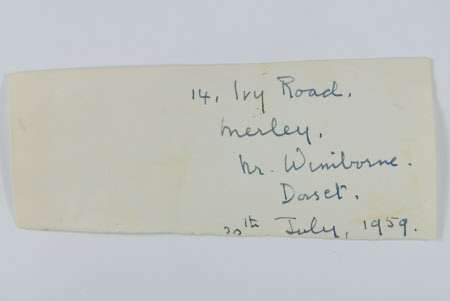 14, Ivy Road,
Merley,
Nr. Wimborne.
Dorset.
July, 1959.